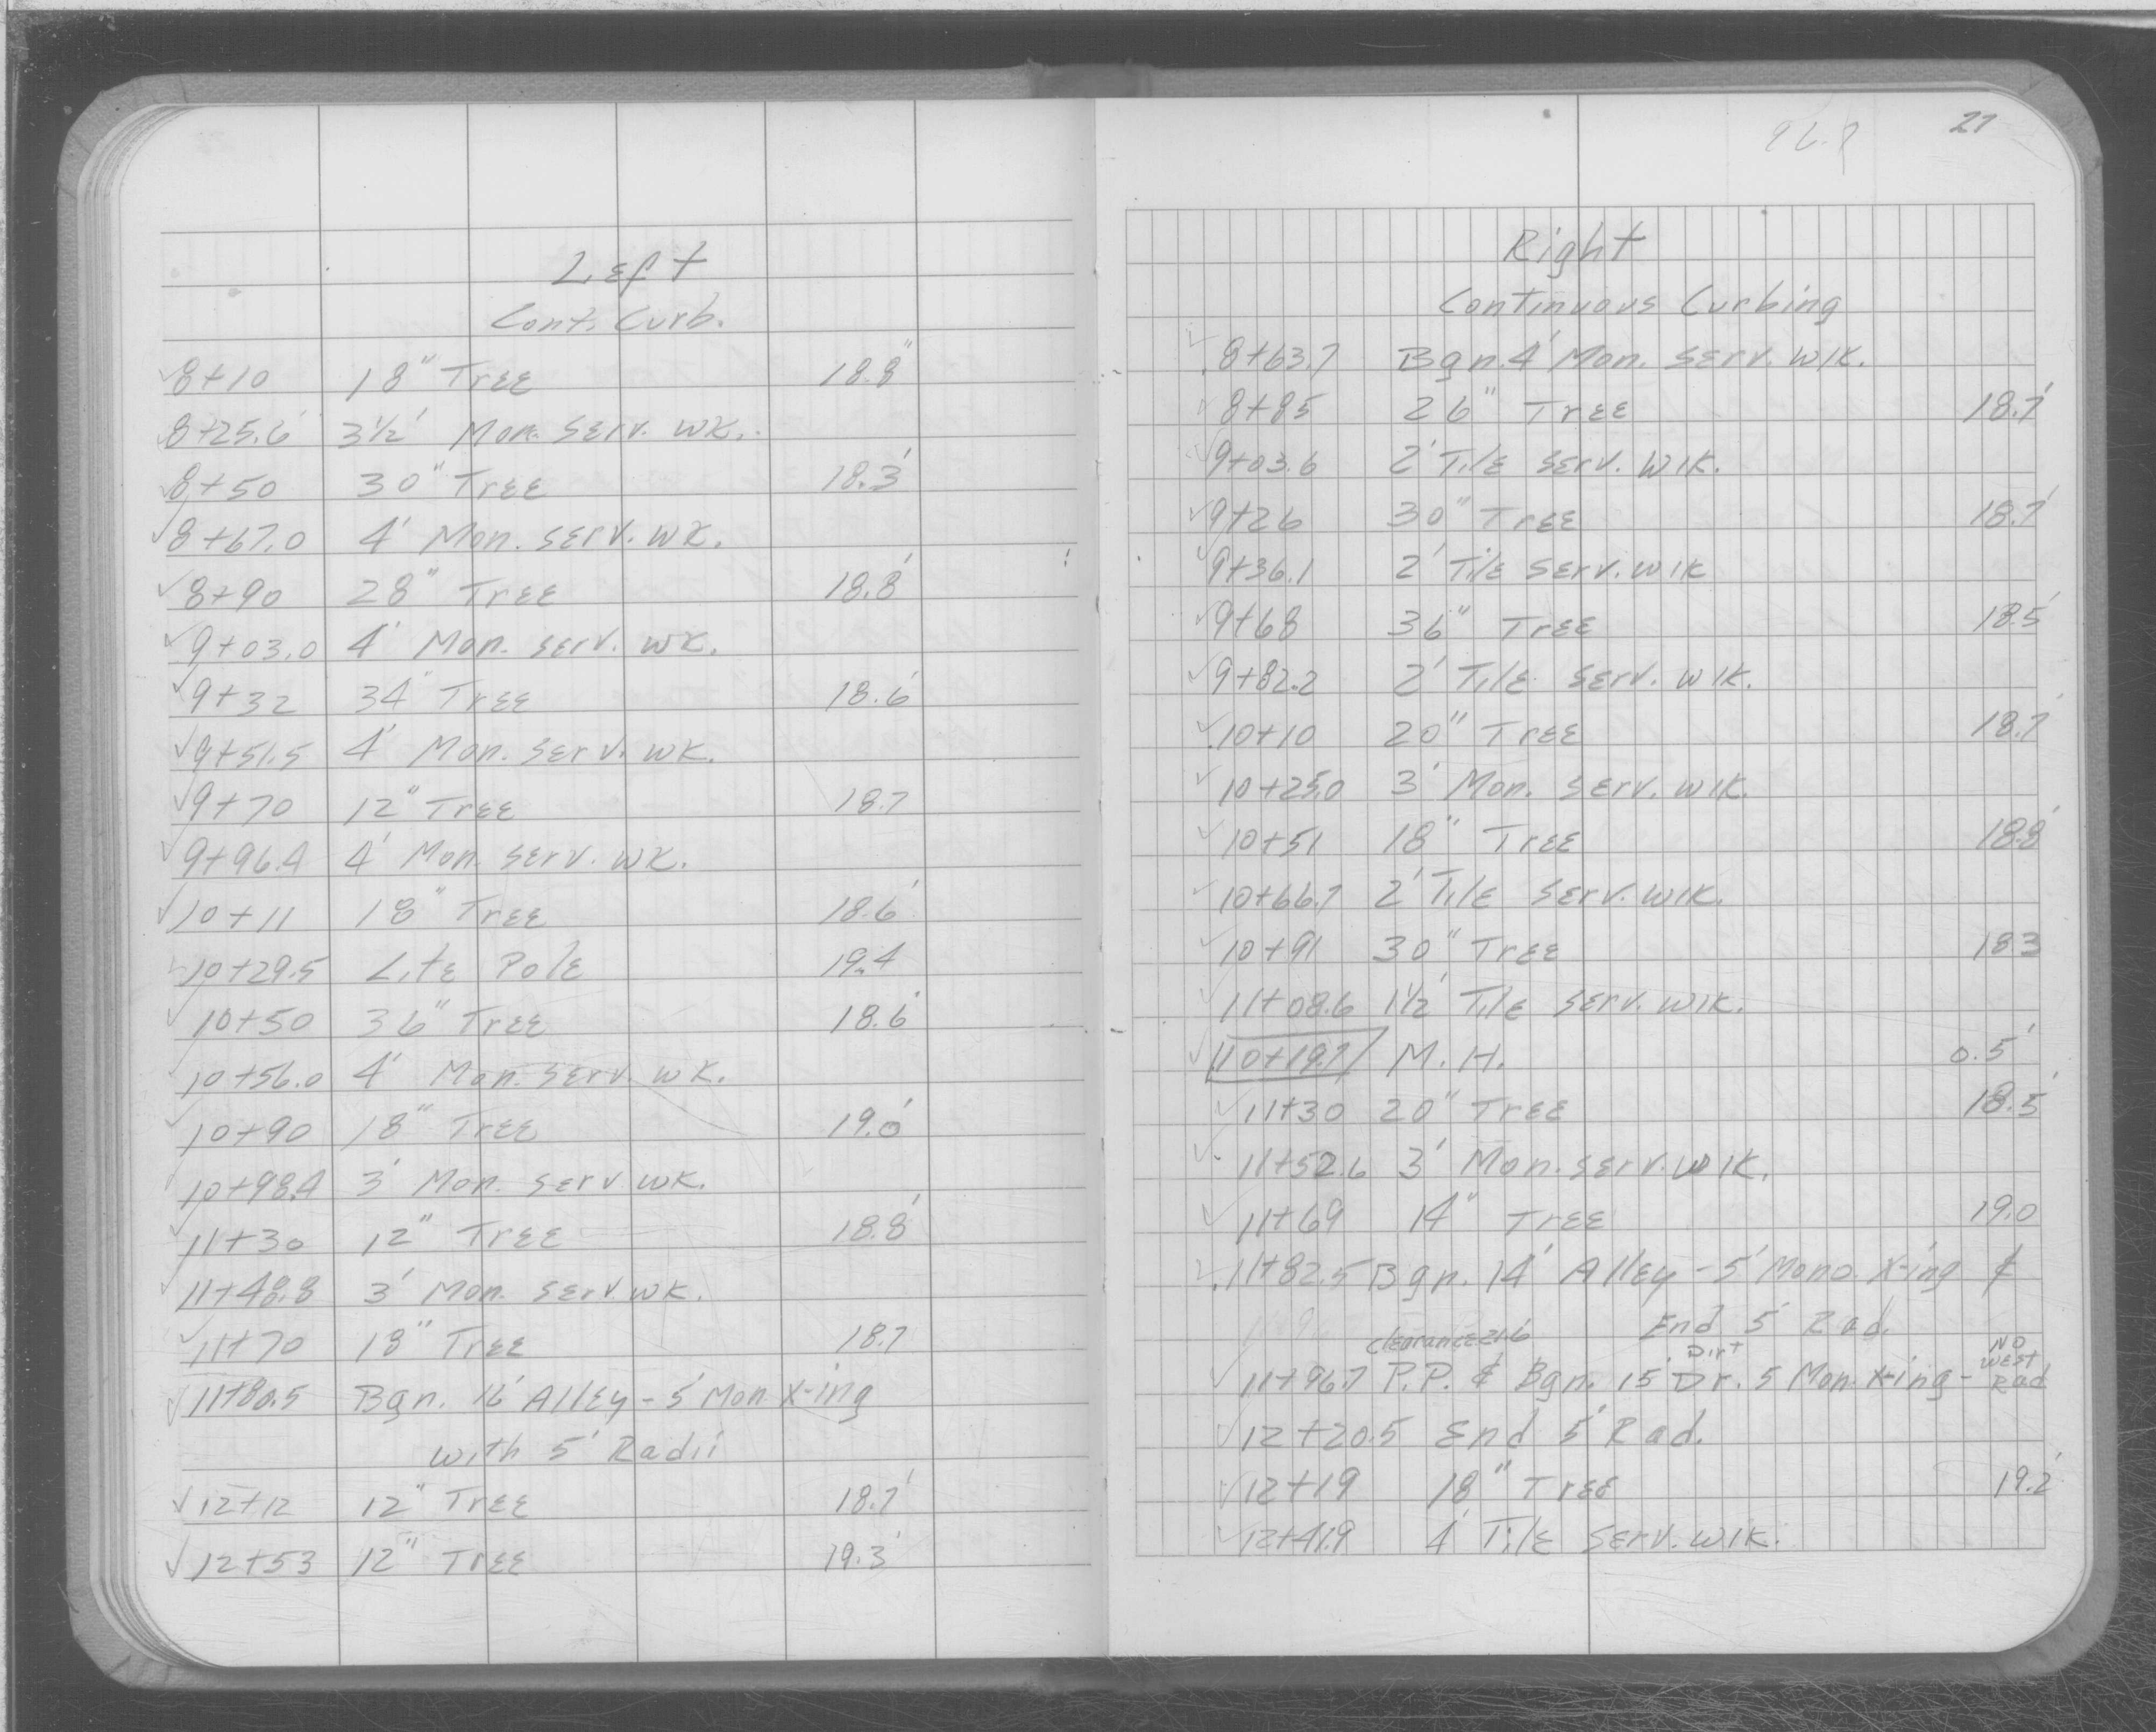 Left
Cont. Curb.
✓ 8+10 18" Tree 18.8"
✓ 8+25.6 3½' Mon. Serv. WK.
✓ 8+50 30" Tree 18.3'
✓ 8+67.0 4' Mon. Serv. WK.
✓ 8+90 28" Tree 18.8'
✓ 9+03.0 4' Mon. Serv. WK.
✓ 9+32 34" Tree 18.6'
✓ 9+51.5 4' Mon. Serv. WK.
✓ 9+70 12" Tree 18.7
✓ 9+96.4 4' Mon. Serv. WK.
✓ 10+11 18" Tree 18.6'
✓ 10+29.5 Lite Pole 19.4
✓ 10+50 36" Tree 18.6'
✓ 10+56.0 4' Mon. Serv. WK.
✓ 10+90 18" Tree 19.0'
✓ 10+98.4 3' Mon. Serv WK.
✓ 11+30 12" Tree 18.8'
✓ 11+48.8 3' Mon. Serv WK.
✓ 11+70 18" Tree 18.7
✓ 11+80.5 Bgn. 16' Alley - 5' Mon X-ing
with 5' Radii
✓ 12+12 12" Tree 18.7'
✓ 12+53 12" Tree 19.3'
27
Right
Continuous Curbing
✓ 8+63.7 Bgn. 4' Mon. Serv. Wlk.
✓ 8+85 26" Tree 18.7'
✓ 9+03.6 2' Tile Serv. Wlk.
✓ 9+26 30" Tree 18.7'
✓ 9+36.1 2' Tile Serv. Wlk
✓ 9+68 36" Tree 18.5'
✓ 9+82.2 2' Tile Serv. Wlk.
✓ 10+10 20" Tree 18.7'
✓ 10+25.0 3' Mon. Serv. Wlk.
✓ 10+51 18" Tree 18.8'
✓ 10+66.7 2' Tile Serv. Wlk.
✓ 10+91 30" Tree 183
✓ 11+08.6 1½' Tile Serv. Wlk.
✓ 10+19.7 M.H. 0.5'
✓ 11+30 20" Tree 18.5'
✓ 11+52.6 3' Mon. Serv. Wlk.
✓ 11+69 14" Tree 19.0
✓ 11+82.5 Bgn. 14' Alley - 5' Mono. X-ing &
End 5' Rad.
Clearance 21.6 Dirt No
✓ 11+96.7 P.P. & Bgn. 15' Dr. 5' Mon. X-ing - West Rad
✓ 12+20.5 End 5' Rad.
✓ 12+19 18" Tree 19.2'
✓ 12+41.9 4' Tile Serv. Wlk.